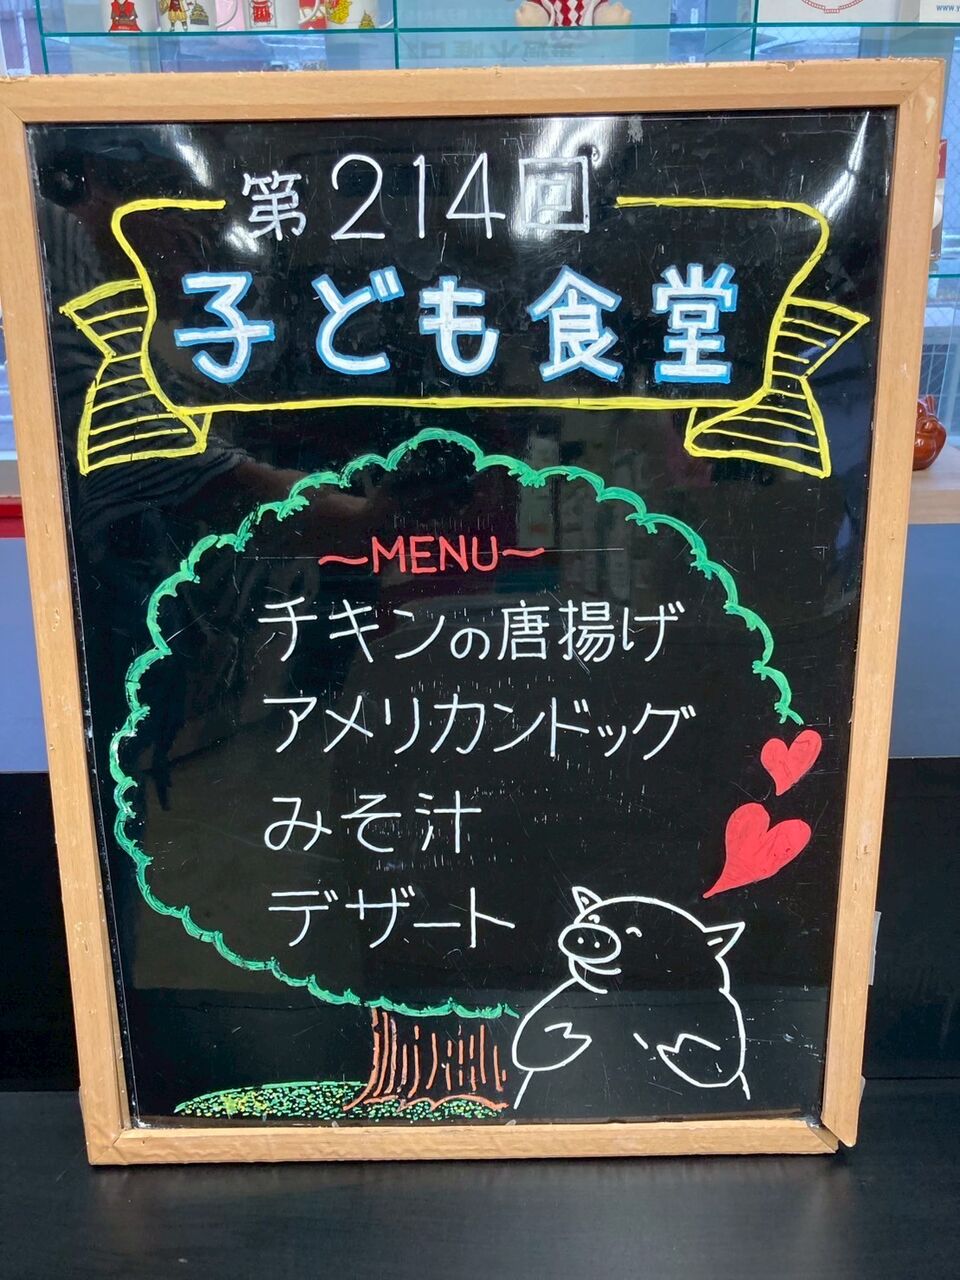 第214回
子ども食堂
～MENU～
チキンの唐揚げ
アメリカンドッグ
みそ汁
デザート